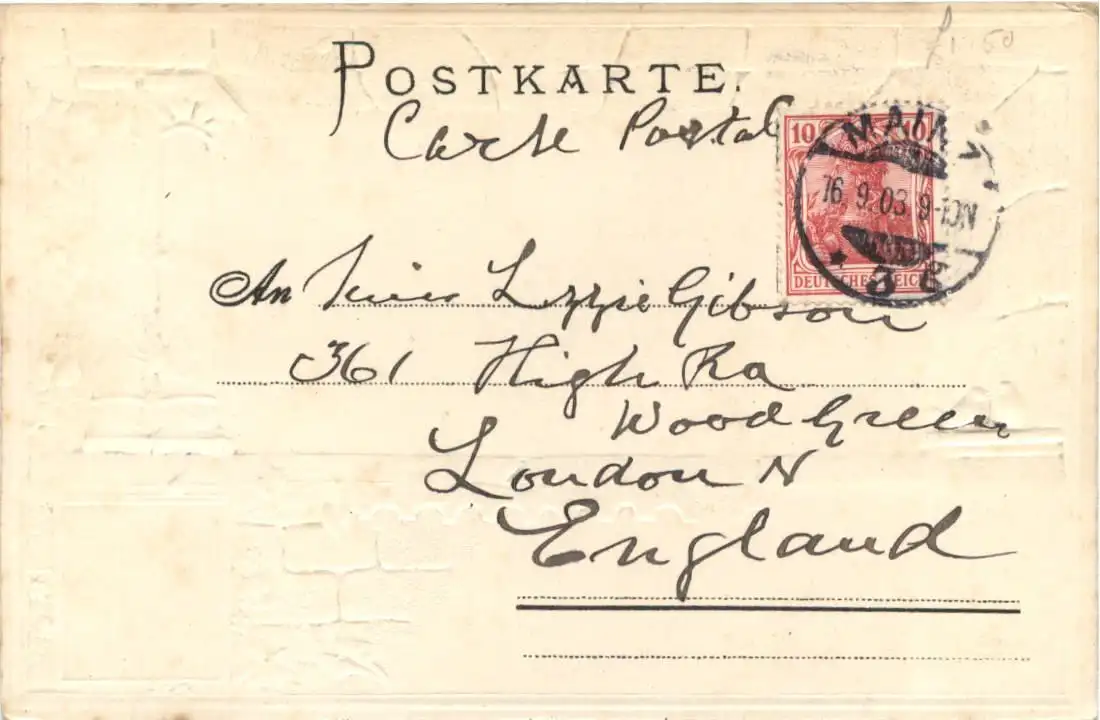 £1.50
POSTKARTE.
Carte Postal
10 10
MAINZ
16. 9.03. 9-10N
* 3 *
DEUTSCHES REICH
An Miss Lizzie Gibson
361 High Ra
Wood Green
London N
England